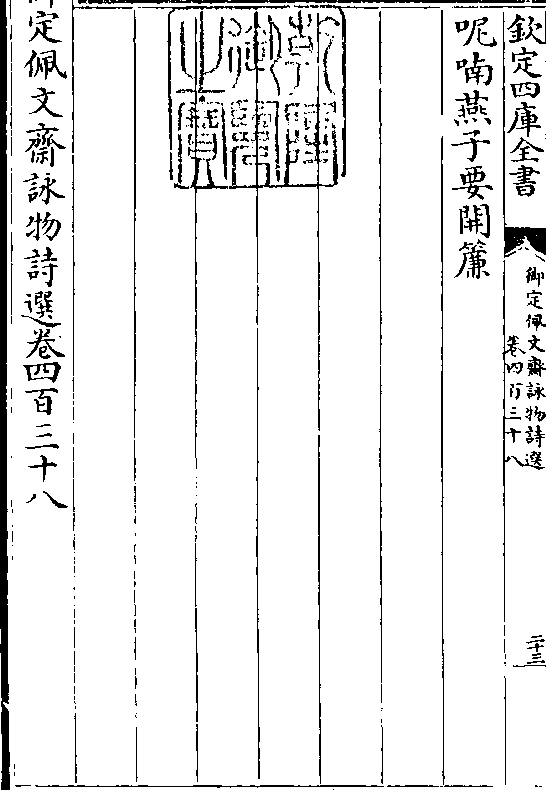 欽定四庫全書
御定佩文齋詠物詩選
卷四百三十八
二十三
呢喃燕子要開簾
乾隆御覽之寶
御定佩文齋詠物詩選卷四百三十八